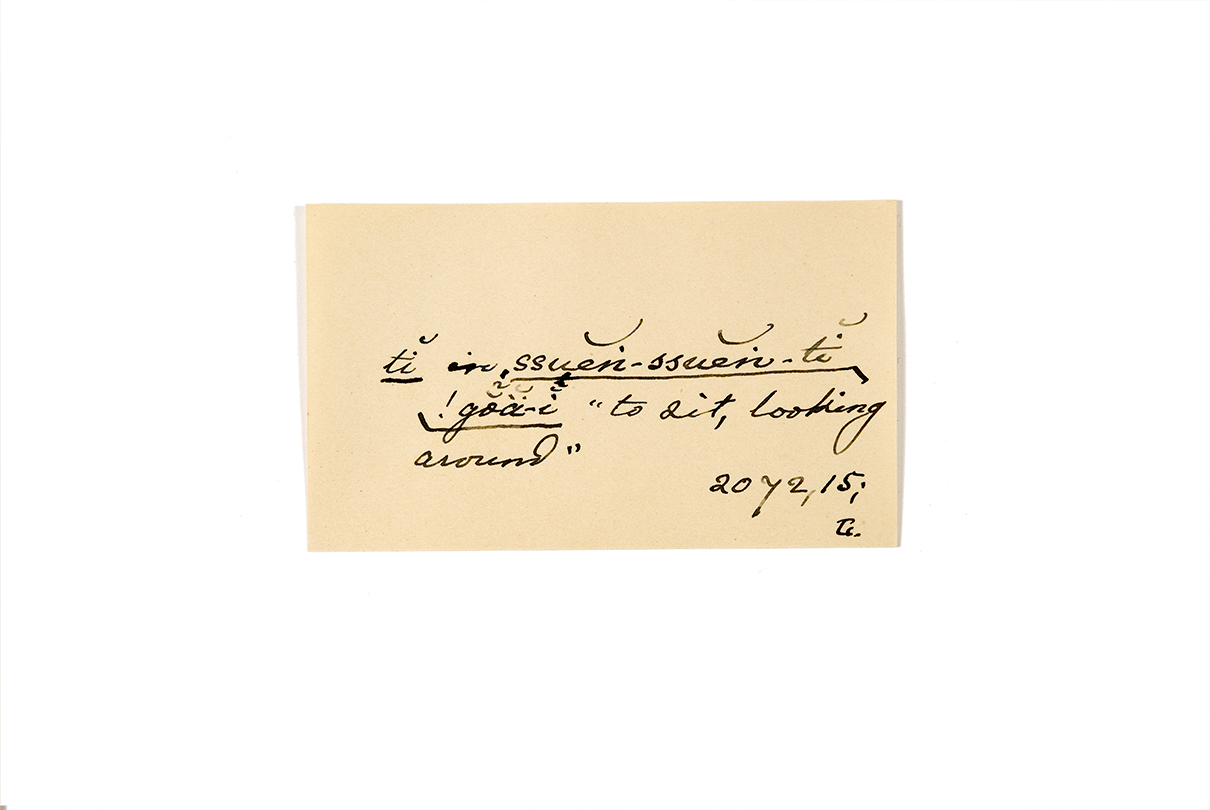 tĭ in ssuĕn-ssuĕn-tĭ
!gŏä-ĭ "to sit, looking
around"
2072,15;